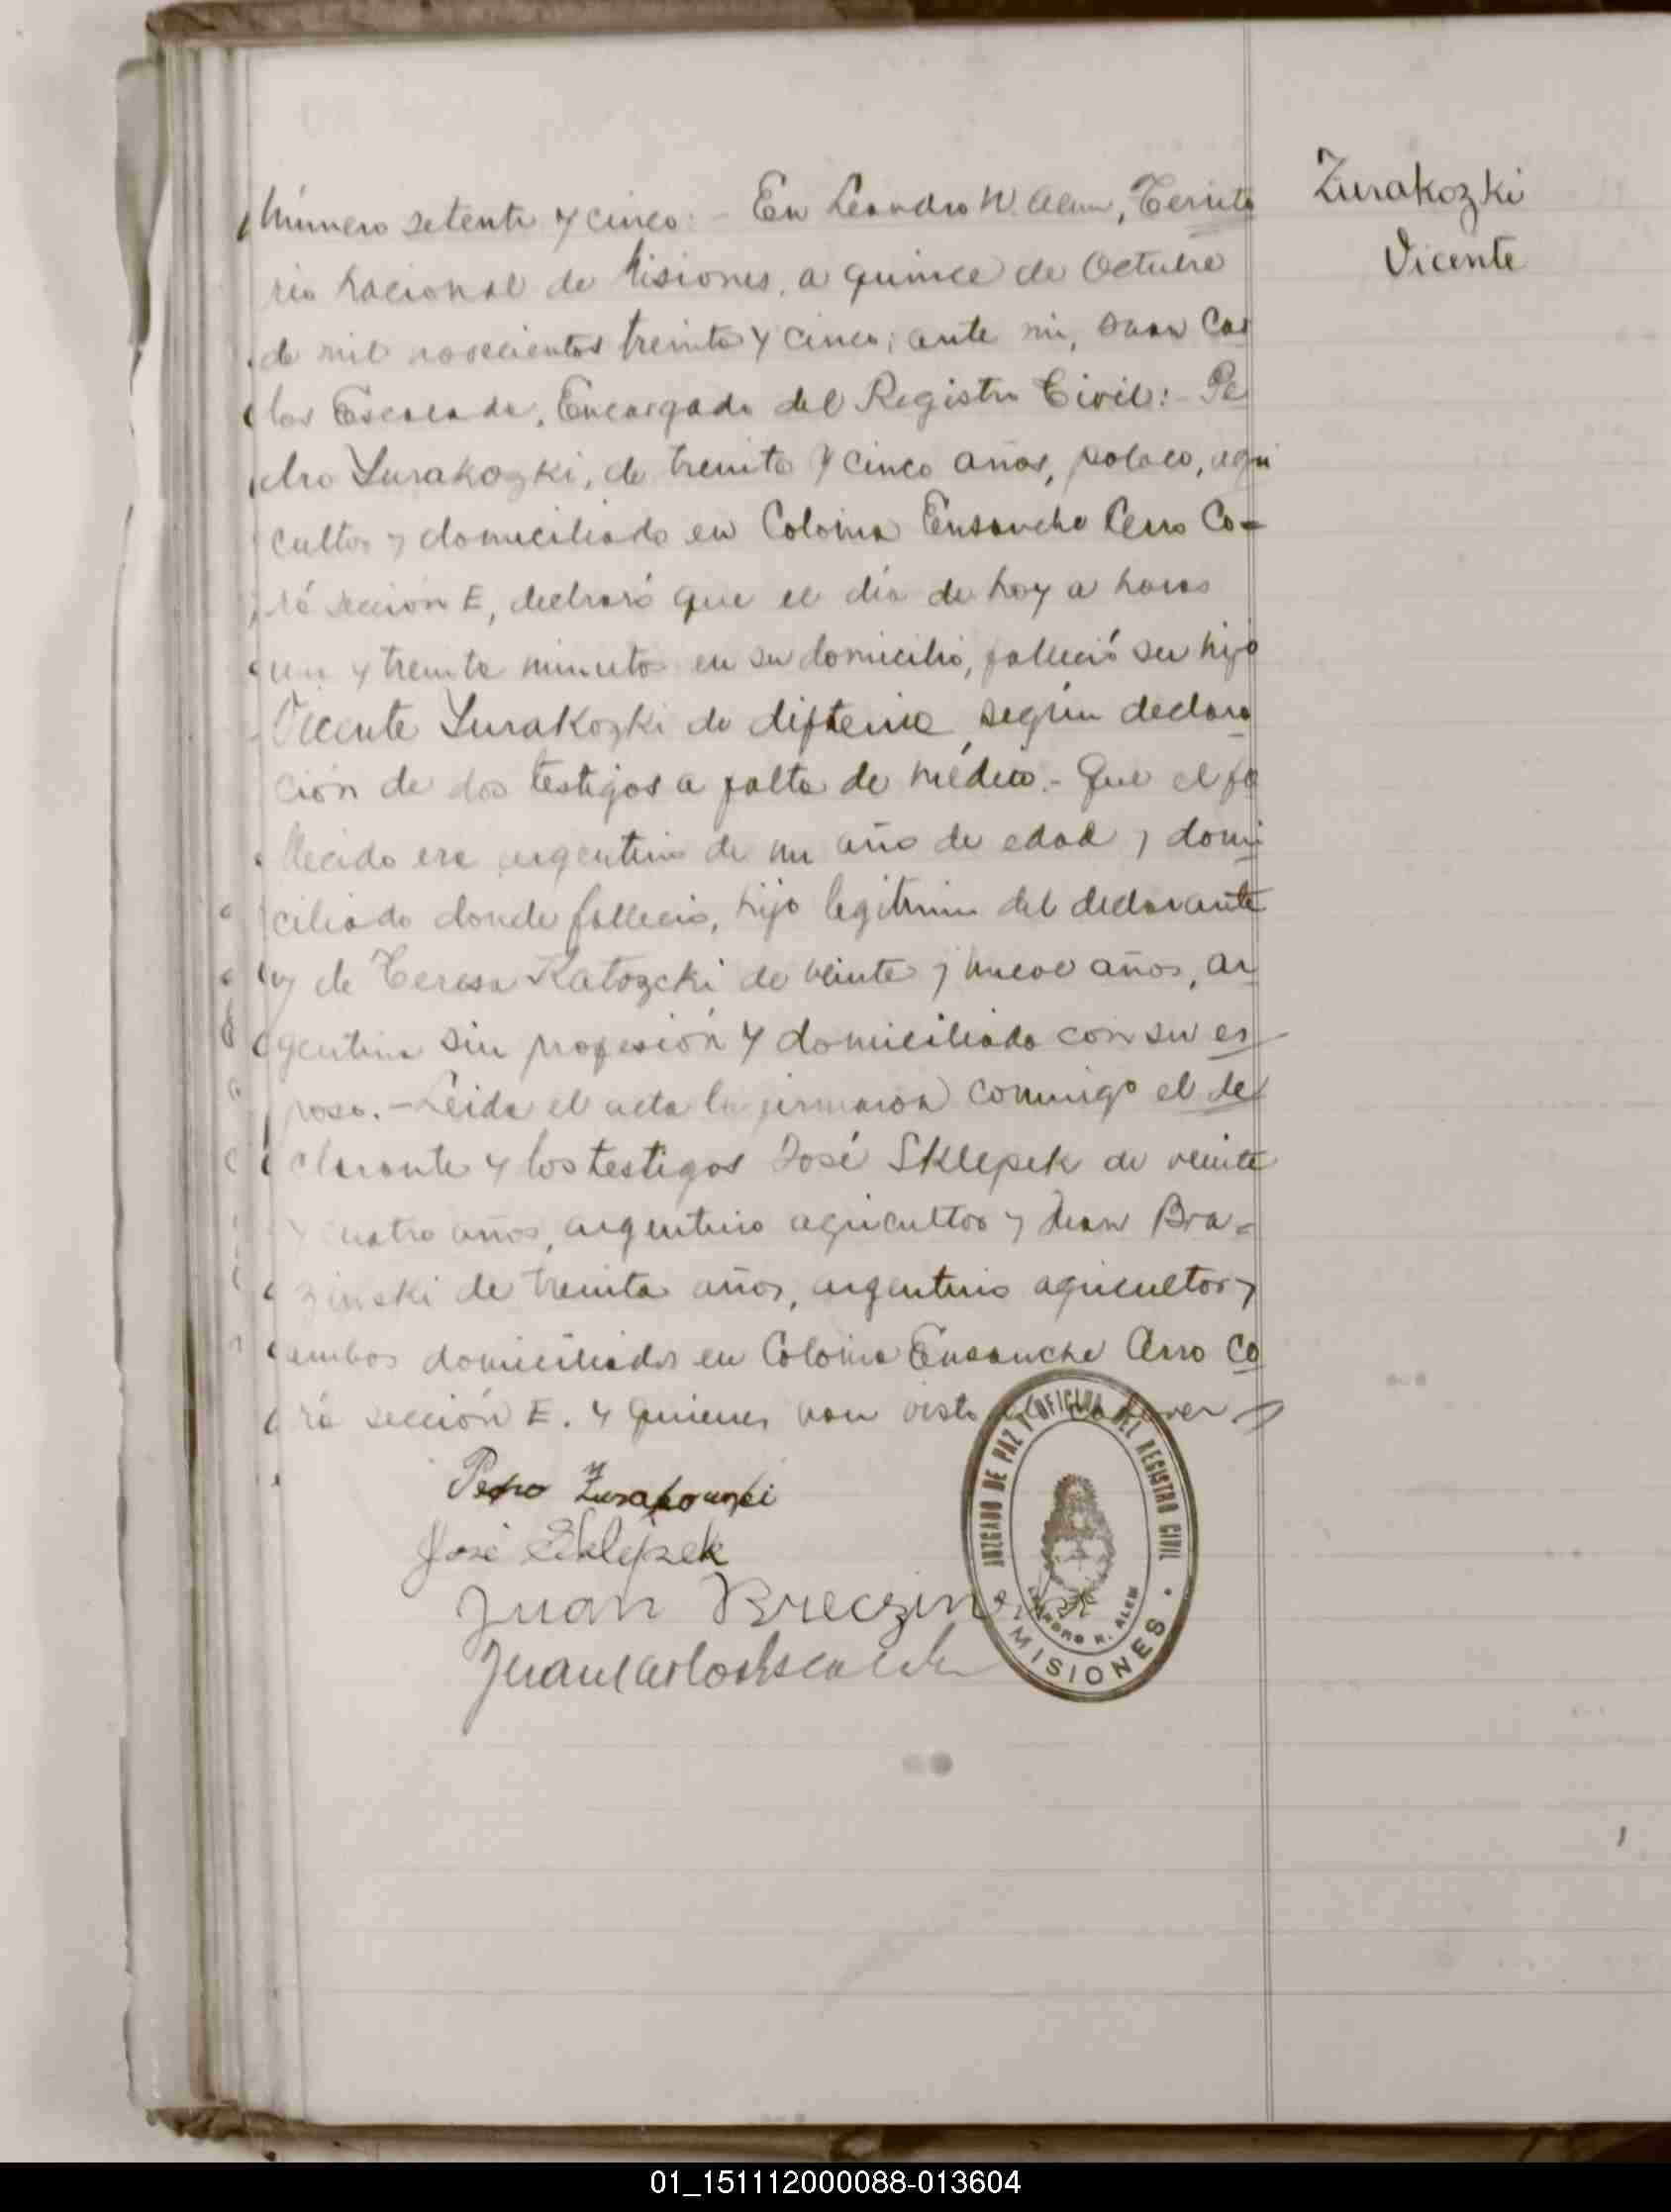 Zurakozki
Vicente
Número setenta y cinco:- En Leandro N. Alem, Territo
rio Nacional de Misiones, a quince de Octubre
de mil novecientos treinta y cinco; ante mi, Juan Car
los Escalada, Encargado del Registro Civil:- Pe
dro Zurakozki, de treinta y cinco años, polaco, agri
cultor y domiciliado en Colonia Ensanche Cerro Co-
rá sección E, declaró que el día de hoy a horas
una y treinta minutos en su domicilio, falleció su hijo
Vicente Zurakozki de difteria, según declara
ción de dos testigos a falta de médico.- Que el fa
llecido era argentino de un año de edad y domi
ciliado donde falleció, hijo legítimo del declarante
y de Teresa Katozcki de veinte y nueve años, ar
gentina sin profesión y domiciliada con su es
poso.- Leida el acta la firmaron conmigo el de
clarante y los testigos José Sklepek de veinte
y cuatro años, argentino agricultor y Juan Bra-
zinski de treinta años, argentino agricultor y
ambos domiciliados en Colonia Ensanche Cerro Co
rá sección E. y quienes han visto el cadaver
Pedro Zurakouzki
José Sklepek
Juan Breczin
Juan Carlos Escalada
JUZGADO DE PAZ Y OFICINA DEL REGISTRO CIVIL
LEANDRO N. ALEM
MISIONES
01_151112000088-013604